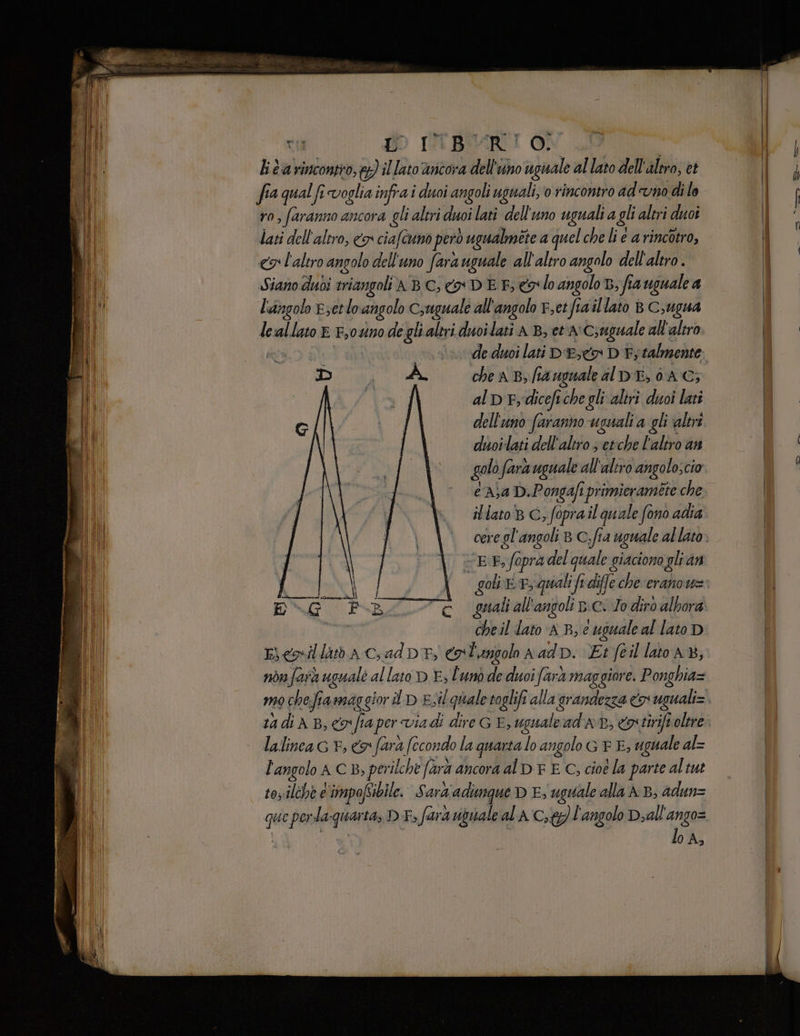 LIBRO.
li è a rincontro, & il lato ancora dell'uno uguale al lato dell'altro, et
sia qual si voglia infra i duoi angoli uguali, o rincontro ad uno di lo
ro, saranno ancora gli altri duoi lati dell'uno uguali a gli altri duoi
lati dell'altro, & ciascuno però ugualmēte a quel che li è a rincōtro,
& l'altro angolo dell'uno sarà uguale all'altro angolo dell'altro.
Siano duoi triangoli A B C, & D E F, & lo angolo B, sia uguale a
l'angolo E, et lo angolo C, uguale all'angolo F, et sia il lato B C, ugua
le al lato E F, o uno de gli altri duoi lati A B, et A C, uguale all'altro
de duoi lati D E, & D F, talmente
che A B, sia uguale al D E, o A C,
al D F, dicesi che gli altri duoi lati
dell'uno saranno uguali a gli altri
duoi lati dell'altro, et che l'altro an
golo sarà uguale all'altro angolo, cio
è A, a D. Pongasi primieramēte che
il lato B C, sopra il quale sono adia
cere gl'angoli B C, sia uguale al lato
E F, sopra del quale giaciono gli an
goli E F, quali si disse che erano u=
guali all'angoli B C. Io dirò alhora
che il lato A B, è uguale al lato D
E, & il lato A C, ad D F, & l'angolo A ad D. Et se il lato A B,
non sarà uguale al lato D E, l'uno de duoi sarà maggiore. Ponghia=
mo che sia maggior il D E, il quale toglisi alla grandezza & uguali=
tà di A B, & sia per via di dire G E, uguale ad A B, & tirisi oltre
la linea G F, & sarà secondo la quarta lo angolo G F E, uguale al=
l'angolo A C B, perilche sarà ancora al D F E C, cioè la parte al tut
to, ilche è impossibile. Sarà adunque D E, uguale alla A B, adun=
que per la quarta, D F, sarà uguale al A C, & l'angolo D, all'ango=
lo A,
D A
G
E G F B C